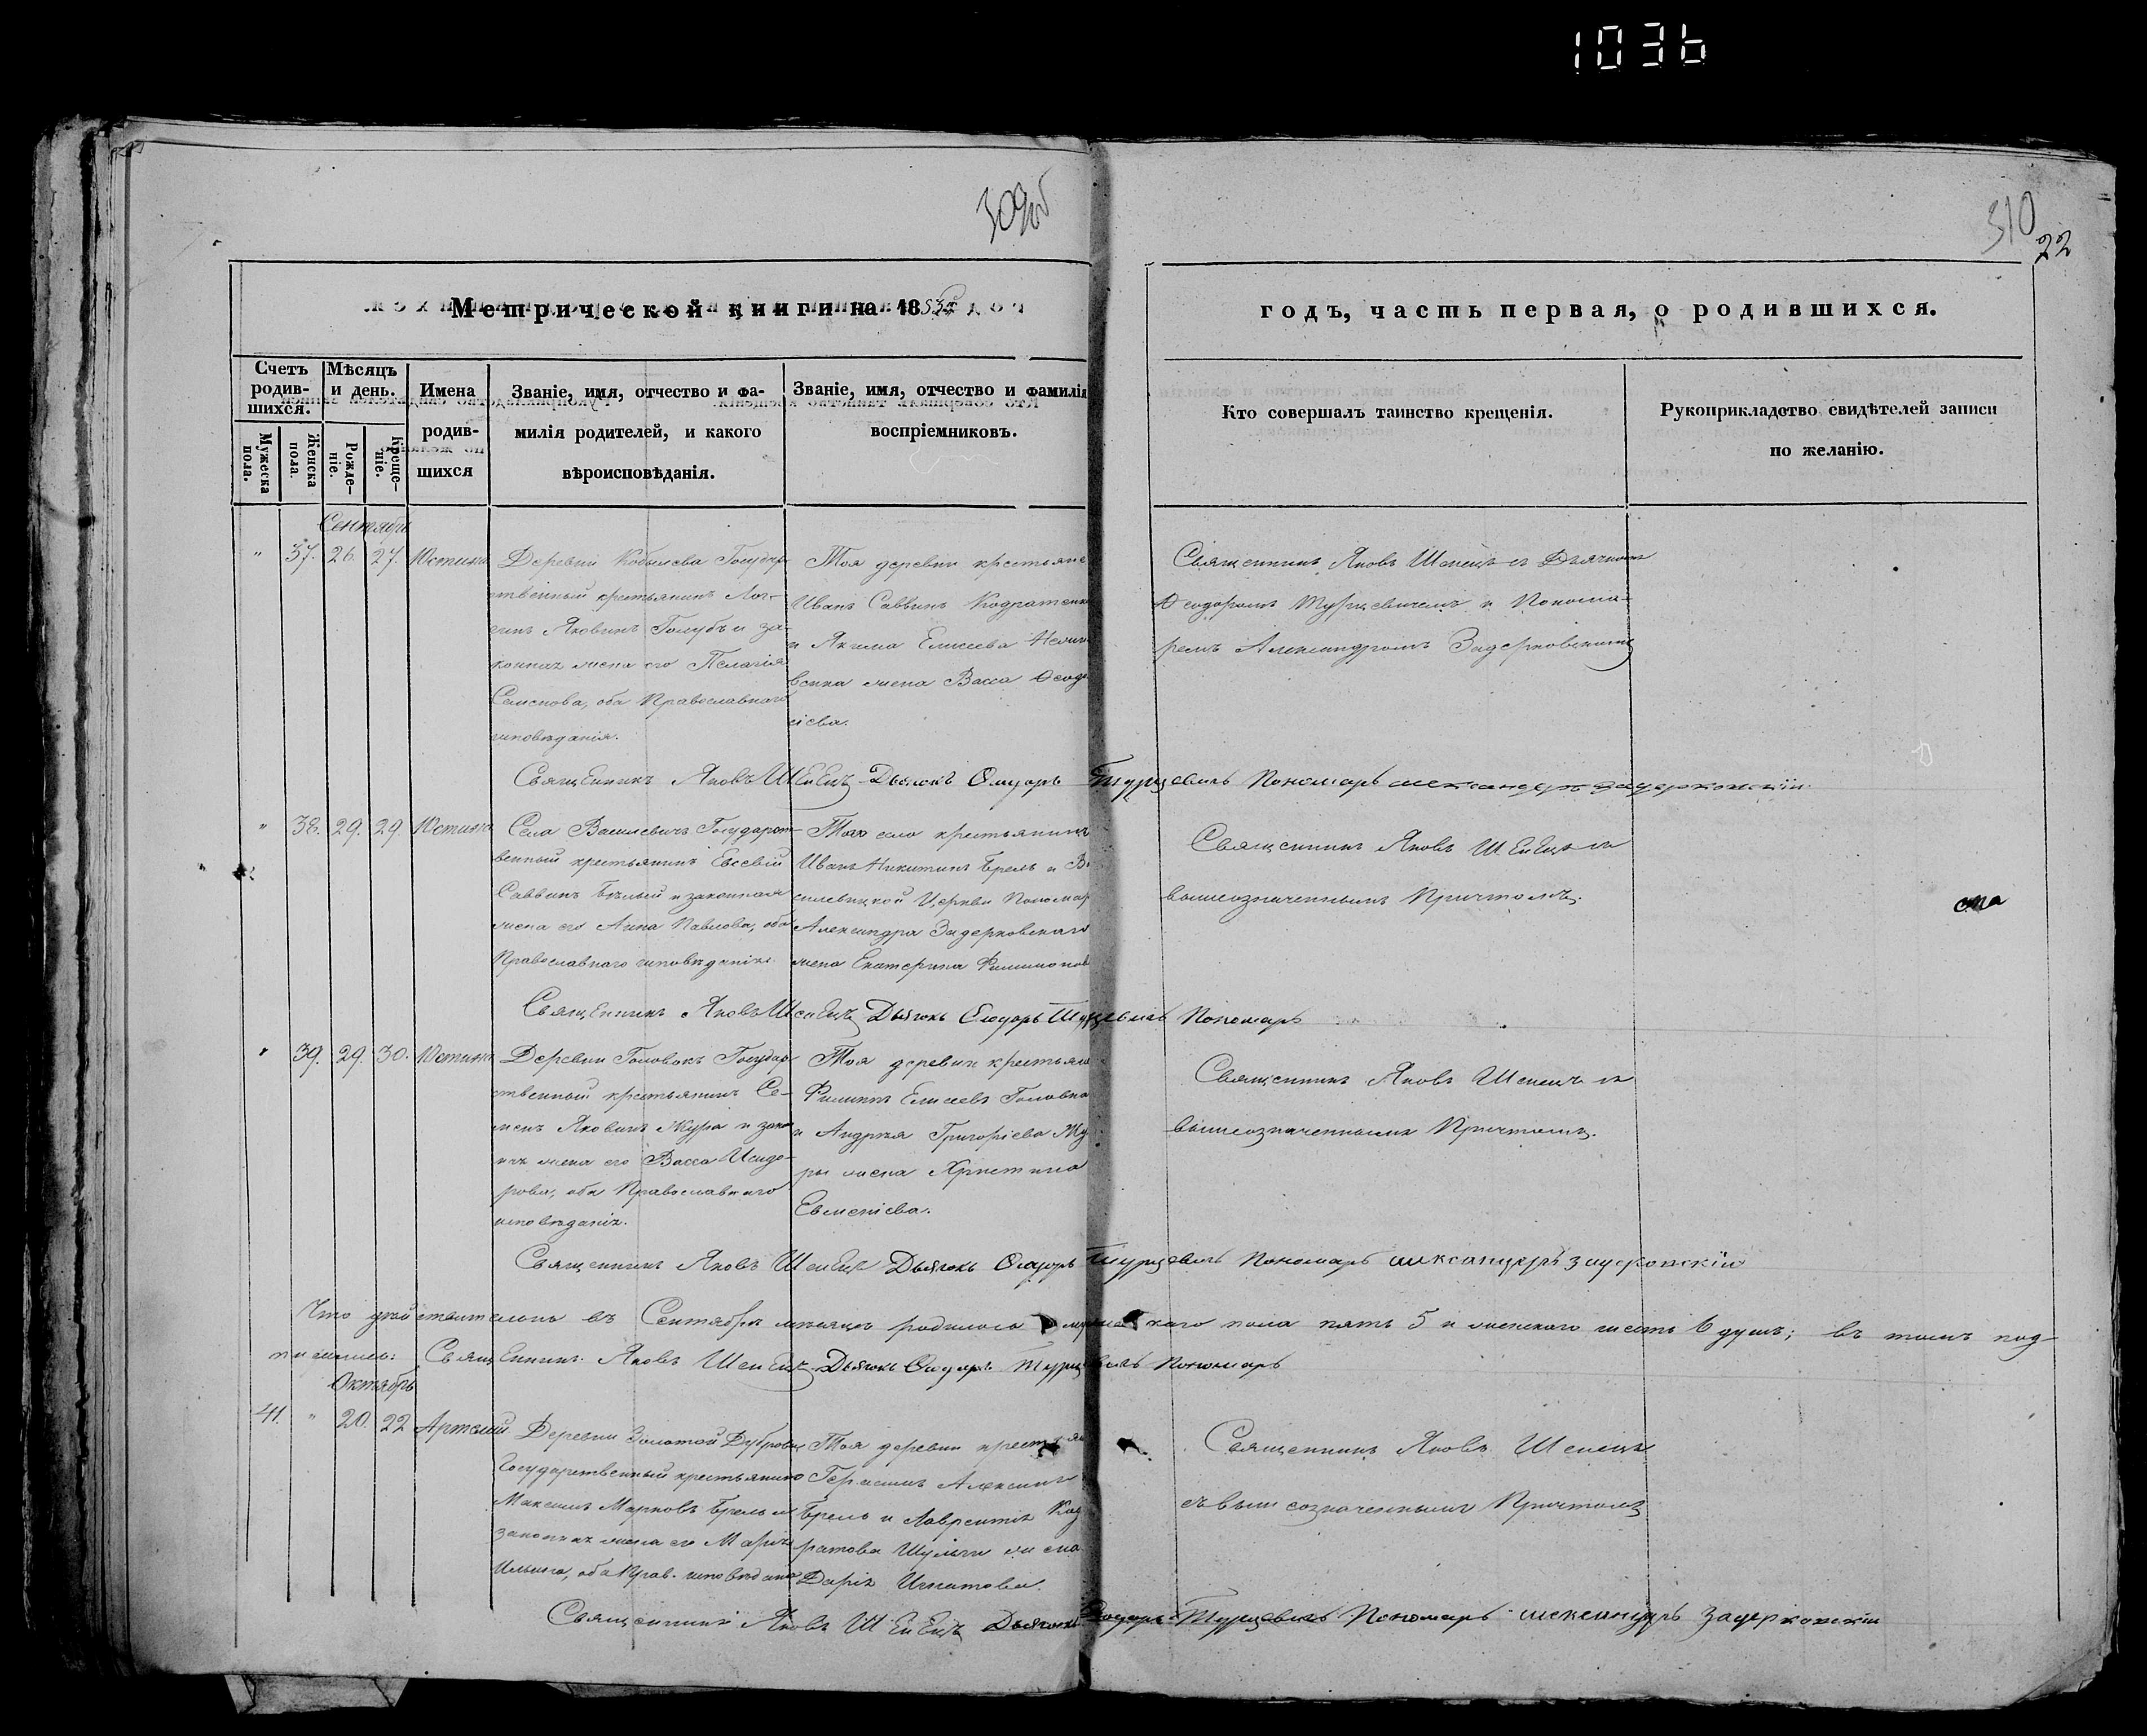 1036
309об
310
22
Метрической книги на 1852
годъ, часть первая, о родившихся.
Счетъ родив-
шихся.
Мужеска пола.
Женска пола.
Мѣсяцъ и день.
Рожде-
ніе.
Креще-
ніе.
Имена
родив-
шихся
Званіе, имя, отчество и фа-
милія родителей, и какого
вѣроисповѣданія.
Званіе, имя, отчество и фамилія
воспріемниковъ.
Кто совершалъ таинство крещенія.
Рукоприкладство свидѣтелей записи
по желанію.
Сентябрь
" 37. 26. 27. Юстина
Деревни Кобылева Государ-
ственный крестьянинъ Лог-
гинъ Яковинъ Голубъ и за-
конная жена его Пелагія
Семенова, оба Православнаго
исповѣданія.
Тоя деревни крестьяне
Иванъ Саввинъ Кодратенко
и Якима Елисеева
жена Васса Ѳеодо
сіева.
Священникъ Яковъ Шенецъ съ Дьячкомъ
Ѳеодоромъ Турцевичемъ и Понома-
ремъ Александромъ Задерковскимъ
Священникъ Яковъ Шенецъ Дьячокъ Ѳеодоръ Турцевичъ Пономарь Александеръ Задерковскій
" 38. 29. 29 Юстина
Села Василевичъ Государст-
венный крестьянинъ Евсевій
Саввинъ Бѣлый и законная
жена его Анна Павлова, оба
Православнаго исповѣданія.
Того села крестьянинъ
Иванъ Никитинъ Брель и Ва
силевицкой Церкви Пономар
Александра Задерковскаго
жена Екатерина Филимонов
Священникъ Яковъ Шенецъ съ
вышеозначеннымъ Причтомъ.
Священникъ Яковъ Шенецъ Дьячокъ Ѳеодоръ Турцевичъ Пономарь
" 39. 29. 30. Юстина
Деревни Головокъ Государ-
ственный крестьянинъ Се-
менъ Яковинъ Жура и закон
ная жена его Васса Исидо-
рова, оба Православнаго
исповѣданія.
Тоя деревни крестьяне
Филиппъ Елисеевъ Головко
и Андрея Григоріева Жу
ры жена Христина
Евменіева.
Священникъ Яковъ Шенецъ съ
вышеозначеннымъ Причтомъ.
Священникъ Яковъ Шенецъ Дьячокъ Ѳеодоръ Турцевичъ Пономарь Александеръ Задерковскій
Что дѣйствительно въ Сентябрѣ мѣсяцѣ родилось мужескаго пола пять 5 и женскаго шесть 6 душъ; въ томъ под-
писались: Священникъ Яковъ Шенецъ Дьячокъ Ѳеодоръ Турцевичъ Пономарь
Октябрь
41. " 20. 22 Артемій
Деревни Золотой Дубровы
Государственный крестьянинъ
Максимъ Марковъ Брель и
законная жена его Марія
Ильина, оба Прав. исповѣданія
Тоя деревни крестьян
Герасимъ Алексинъ
Брель и Лаврентія Код
ратова Шульги жена
Дарія Игнатова.
Священникъ Яковъ Шенецъ
съ вышеозначеннымъ Причтомъ
Священникъ Яковъ Шенецъ Дьячокъ Ѳеодоръ Турцевичъ Пономарь Александръ Задерковскій